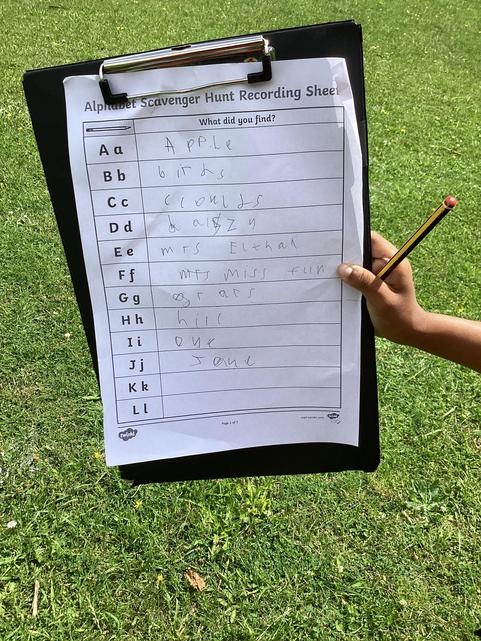 Alphabet Scavenger Hunt Recording Sheet
What did you find?
A a APPLe
B b birds
C c clouds
D d
E e mrs Elthal
F f mrs miss fun
G g grars
H h hill
I i one
J j Jane
K k
L l
twinkl
Page 1 of 2